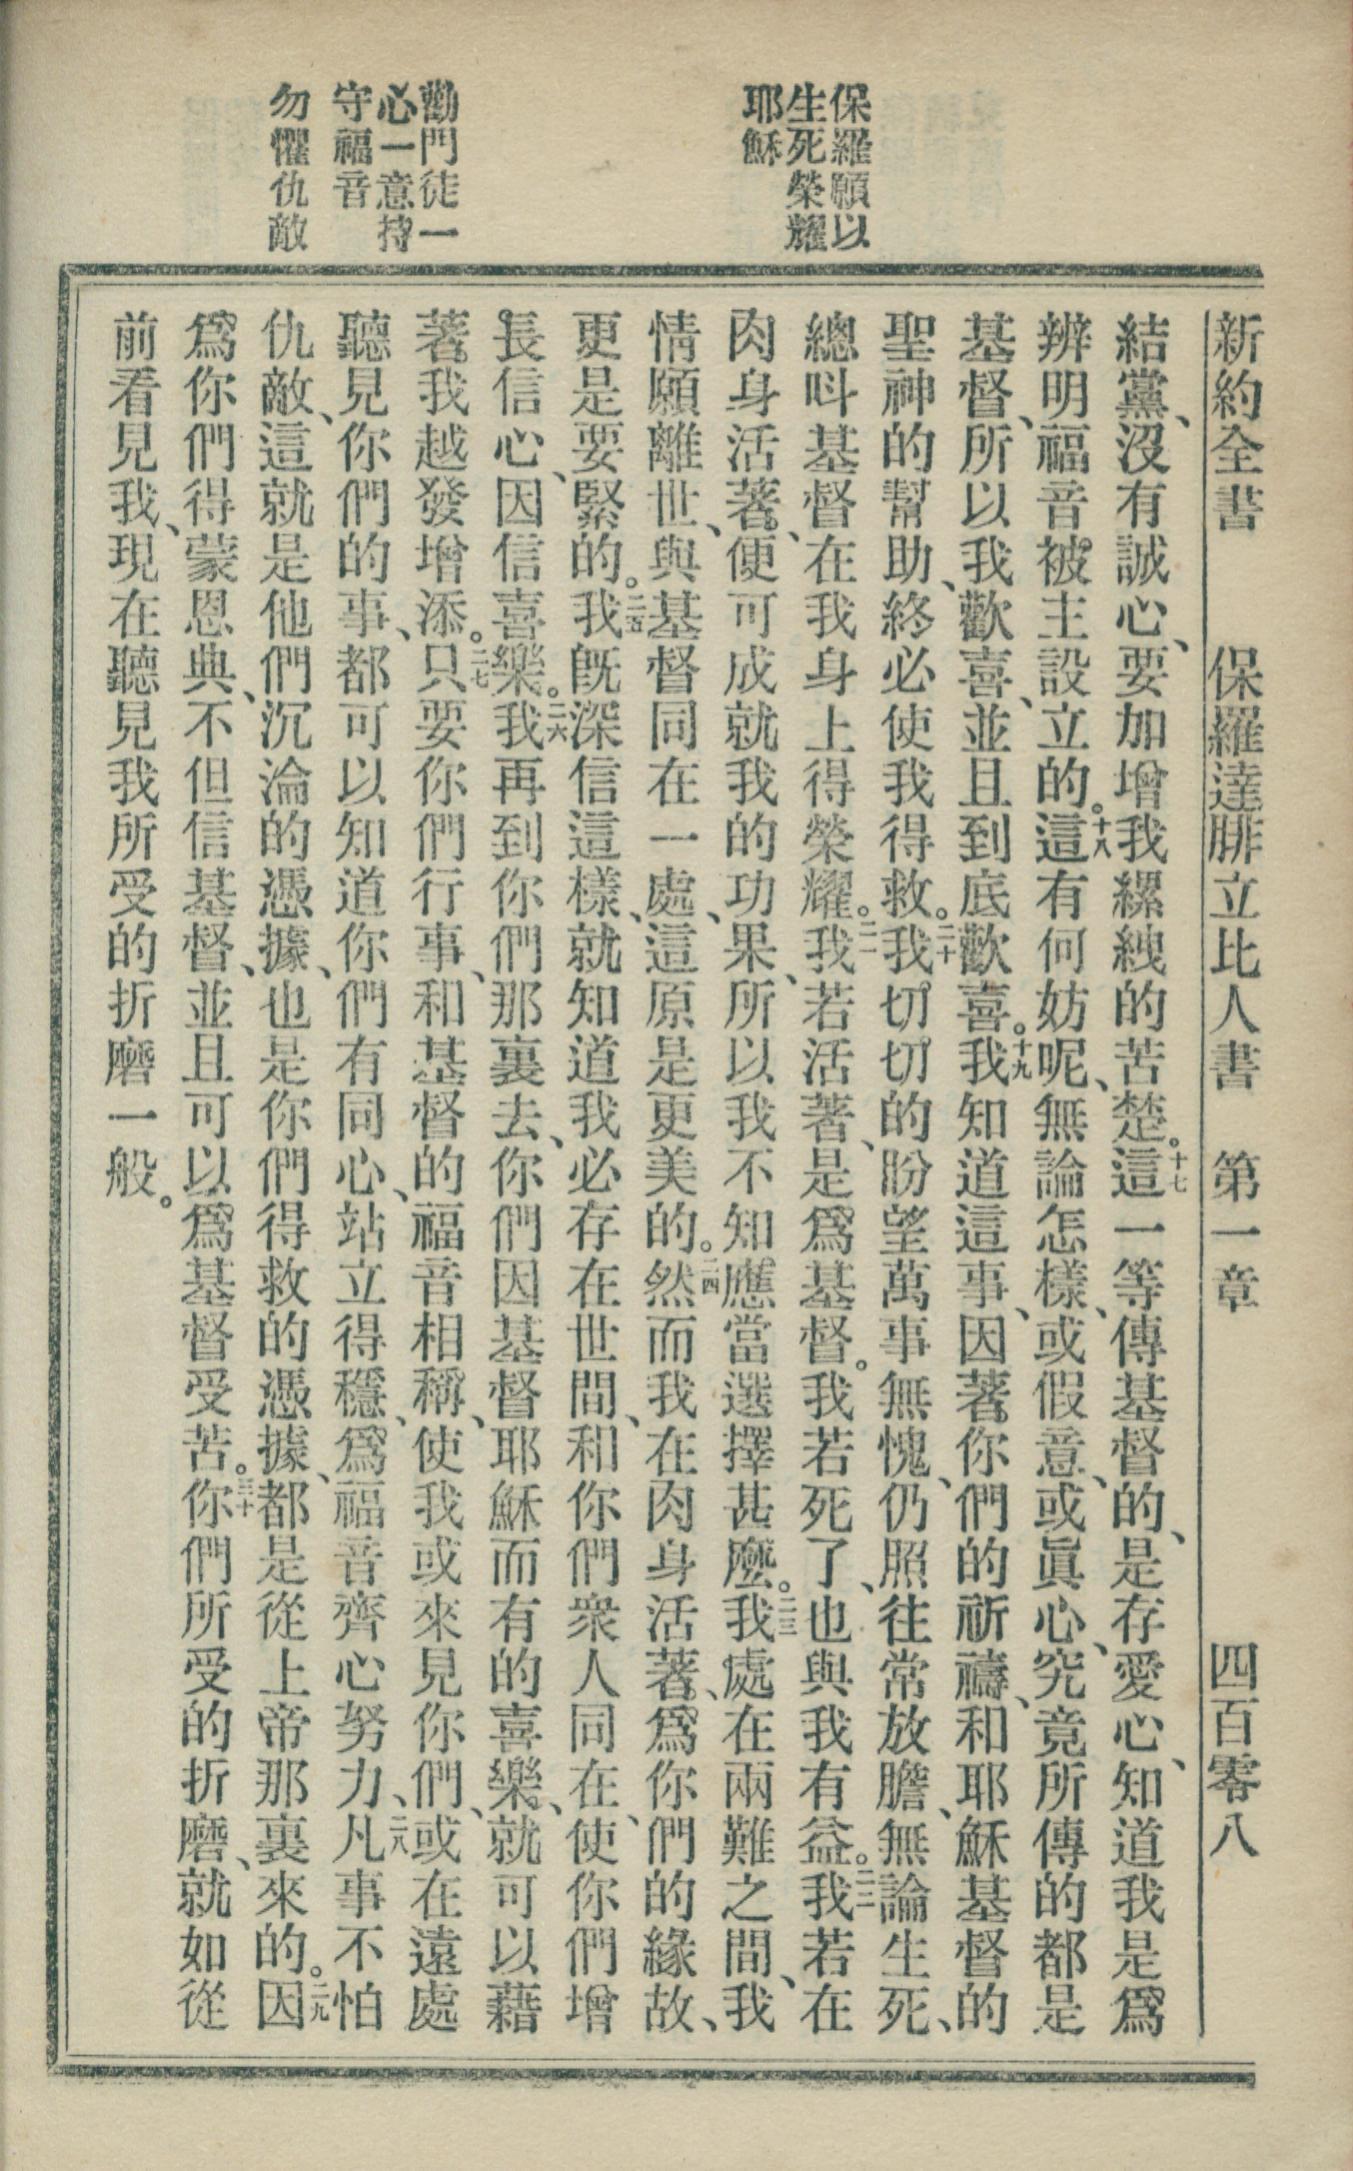 新約全書　保羅達腓立比人書　第一章　四百零八
保羅願以
生死榮耀
耶穌
勸門徒一
心一意持
守福音
勿懼仇敵
結黨、沒有誠心、要加增我縲絏的苦楚。十七這一等傳基督的、是存愛心、知道我是爲
辨明福音被主設立的。十八這有何妨呢、無論怎樣、或假意、或眞心、究竟所傳的都是
基督、所以我歡喜、並且到底歡喜。十九我知道這事、因著你們的祈禱、和耶穌基督的
聖神的幫助、終必使我得救。二十我切切的盼望萬事無愧、仍照往常放膽、無論生死、
總呌基督在我身上得榮耀。二一我若活著、是爲基督。我若死了、也與我有益。二二我若在
肉身活著、便可成就我的功果、所以我不知應當選擇甚麼。二三我處在兩難之間、我
情願離世、與基督同在一處、這原是更美的。二四然而我在肉身活著、爲你們的緣故、
更是要緊的。二五我旣深信這樣、就知道我必存在世間、和你們衆人同在、使你們增
長信心、因信喜樂。二六我再到你們那裏去、你們因基督耶穌而有的喜樂、就可以藉
著我越發增添。二七只要你們行事、和基督的福音相稱、使我或來見你們、或在遠處
聽見你們的事、都可以知道你們有同心、站立得穩、爲福音齊心努力、二八凡事不怕
仇敵、這就是他們沉淪的憑據、也是你們得救的憑據、都是從上帝那裏來的。二九因
爲你們得蒙恩典、不但信基督、並且可以爲基督受苦。三十你們所受的折磨、就如從
前看見我、現在聽見我所受的折磨一般。